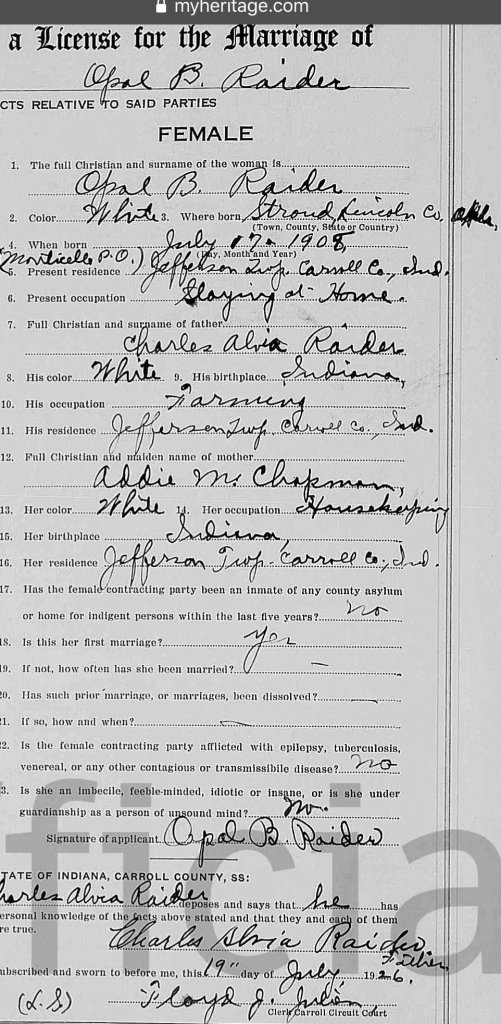 myheritage.com
a License for the Marriage of
Opal B. Raider
CTS RELATIVE TO SAID PARTIES
FEMALE
1. The full Christian and surname of the woman is
Opal B. Raider
2. Color White 3. Where born Stroud, Lincoln Co, Okla.
(Town, County, State or Country)
4. When born July 17 - 1908,
(Day, Month and Year)
(Monticello P.O.)
5. Present residence Jefferson Twp. Carroll Co., Ind.
6. Present occupation Staying at Home.
7. Full Christian and surname of father
Charles Alvia Raider
8. His color White 9. His birthplace Indiana,
10. His occupation Farming
11. His residence Jefferson Twp. Carroll Co., Ind.
12. Full Christian and maiden name of mother
Addie M. Chapman,
13. Her color White 14. Her occupation Housekeeping
15. Her birthplace Indiana,
16. Her residence Jefferson Twp. Carroll Co., Ind.
17. Has the female contracting party been an inmate of any county asylum
or home for indigent persons within the last five years? no
18. Is this her first marriage? yes
19. If not, how often has she been married? —
20. Has such prior marriage, or marriages, been dissolved? —
21. If so, how and when? —
22. Is the female contracting party afflicted with epilepsy, tuberculosis,
venereal, or any other contagious or transmissible disease? no
3. Is she an imbecile, feeble-minded, idiotic or insane, or is she under
guardianship as a person of unsound mind? No.
Signature of applicant Opal B. Raider
ficia
STATE OF INDIANA, CARROLL COUNTY, SS:
Charles Alvia Raider deposes and says that he has
ersonal knowledge of the facts above stated and that they and each of them
re true.
Charles Alvia Raider
Father,
ubscribed and sworn to before me, this 19" day of July 1926.
(L.S) Floyd J. Julien,
Clerk Carroll Circuit Court